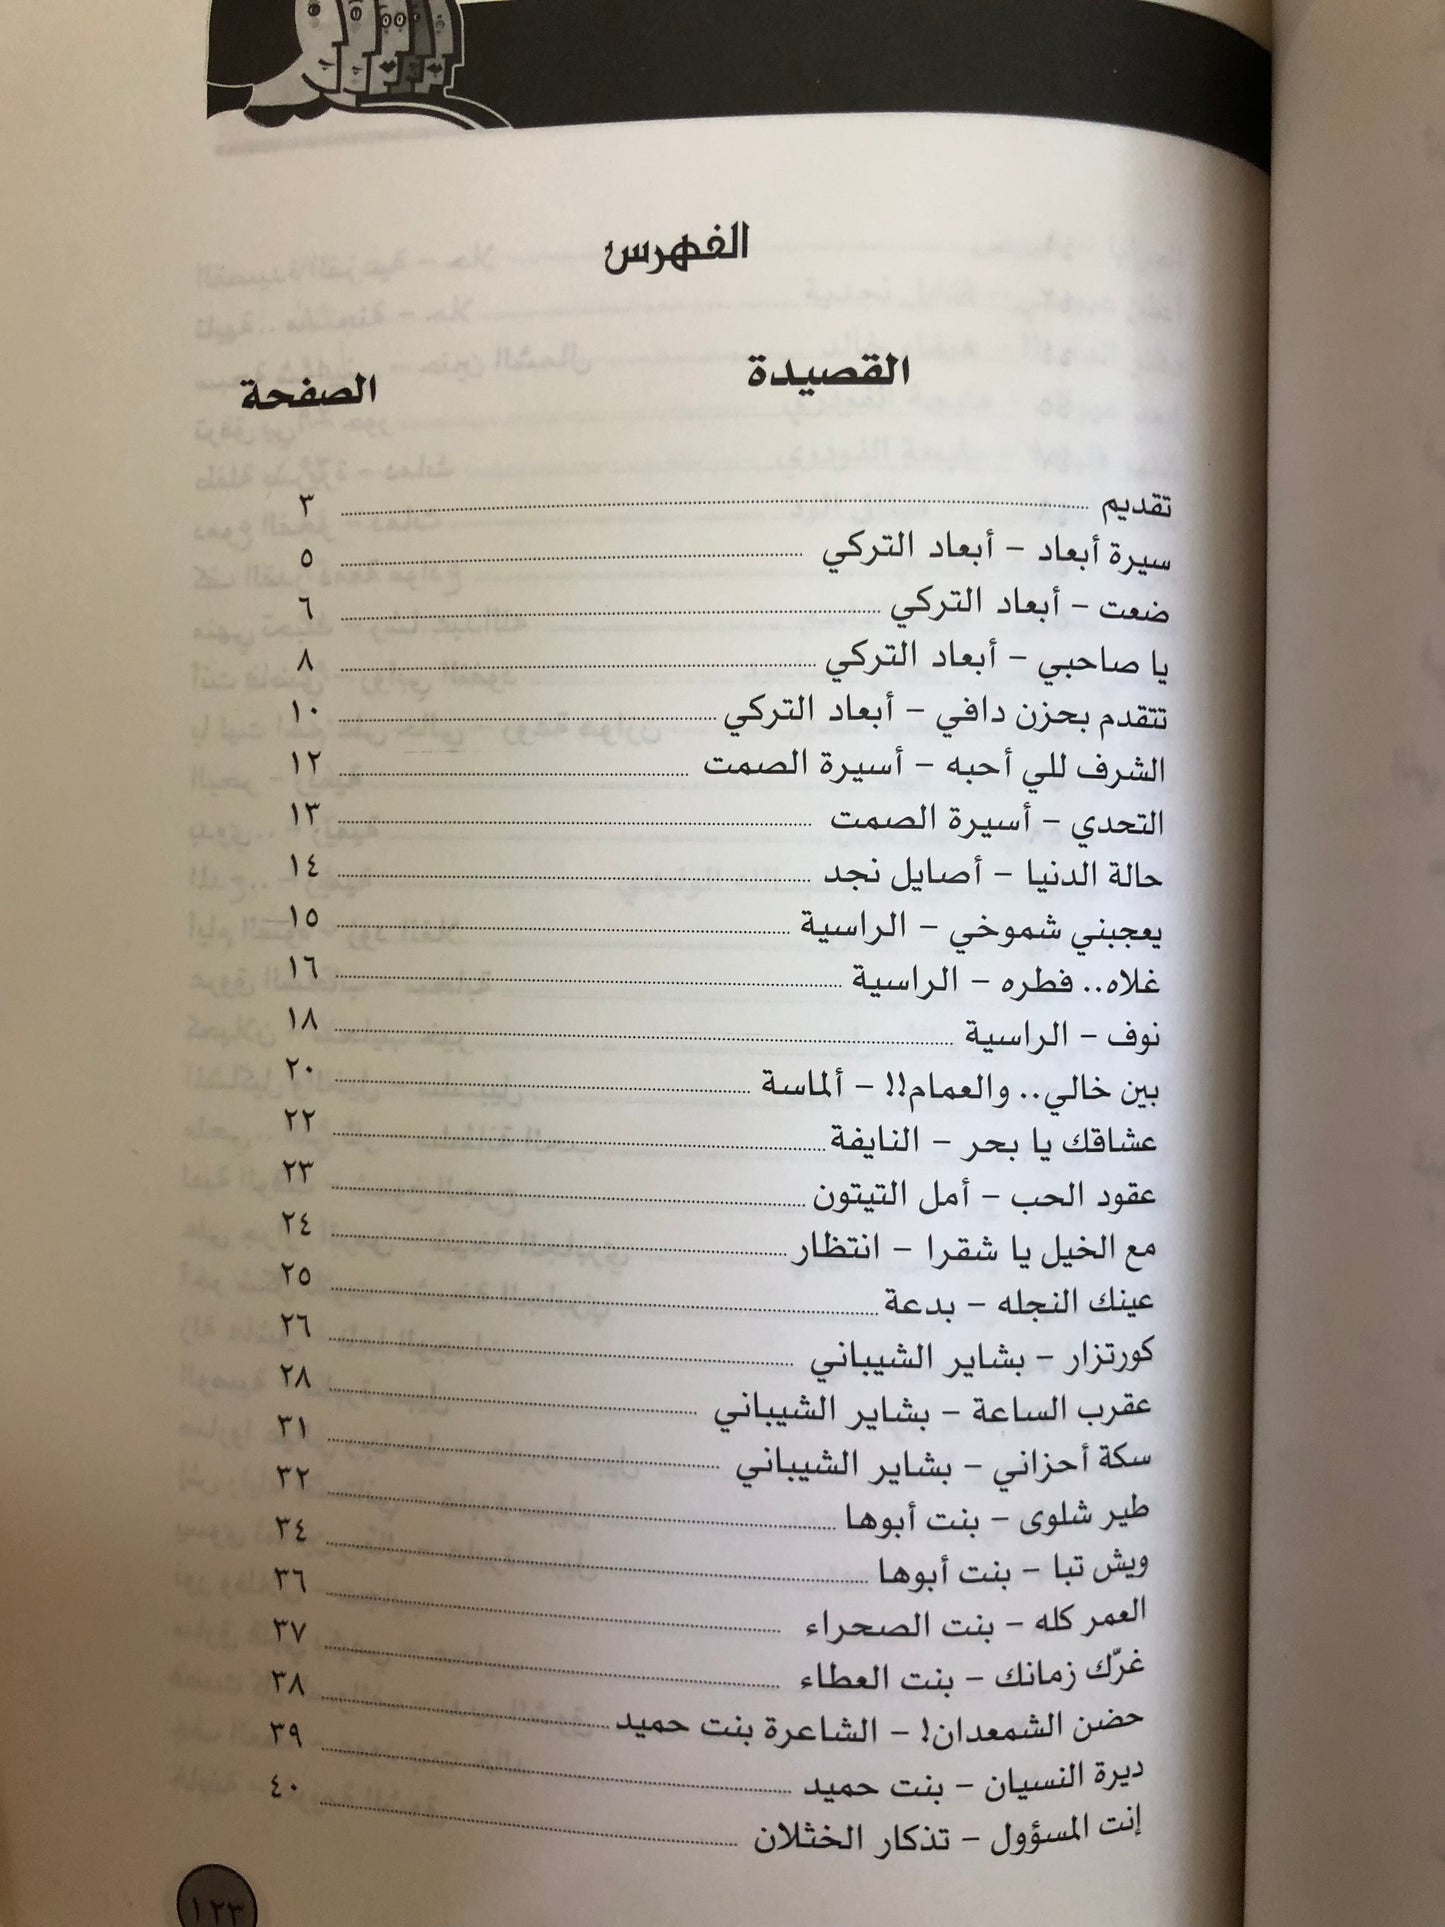 الفهرس
القصيدة الصفحة
تقديم ٣
سيرة أبعاد - أبعاد التركي ٥
ضعت - أبعاد التركي ٦
يا صاحبي - أبعاد التركي ٨
تتقدم بحزن دافي - أبعاد التركي ١٠
الشرف للي أحبه - أسيرة الصمت ١٢
التحدي - أسيرة الصمت ١٣
حالة الدنيا - أصايل نجد ١٤
يعجبني شموخي - الراسية ١٥
غلاه.. فطره - الراسية ١٦
نوف - الراسية ١٨
بين خالي.. والعمام!! - ألماسة ٢٠
عشاقك يا بحر - النايفة ٢٢
عقود الحب - أمل التيتون ٢٣
مع الخيل يا شقرا - انتظار ٢٤
عينك النجله - بدعة ٢٥
كورتزار - بشاير الشيباني ٢٦
عقرب الساعة - بشاير الشيباني ٢٨
سكة أحزاني - بشاير الشيباني ٣١
طير شلوى - بنت أبوها ٣٢
ويش تبا - بنت أبوها ٣٤
العمر كله - بنت الصحراء ٣٦
غرّك زمانك - بنت العطاء ٣٧
حضن الشمعدان! - الشاعرة بنت حميد ٣٨
ديرة النسيان - بنت حميد ٣٩
إنت المسؤول - تذكار الخثلان ٤٠
١٢٣